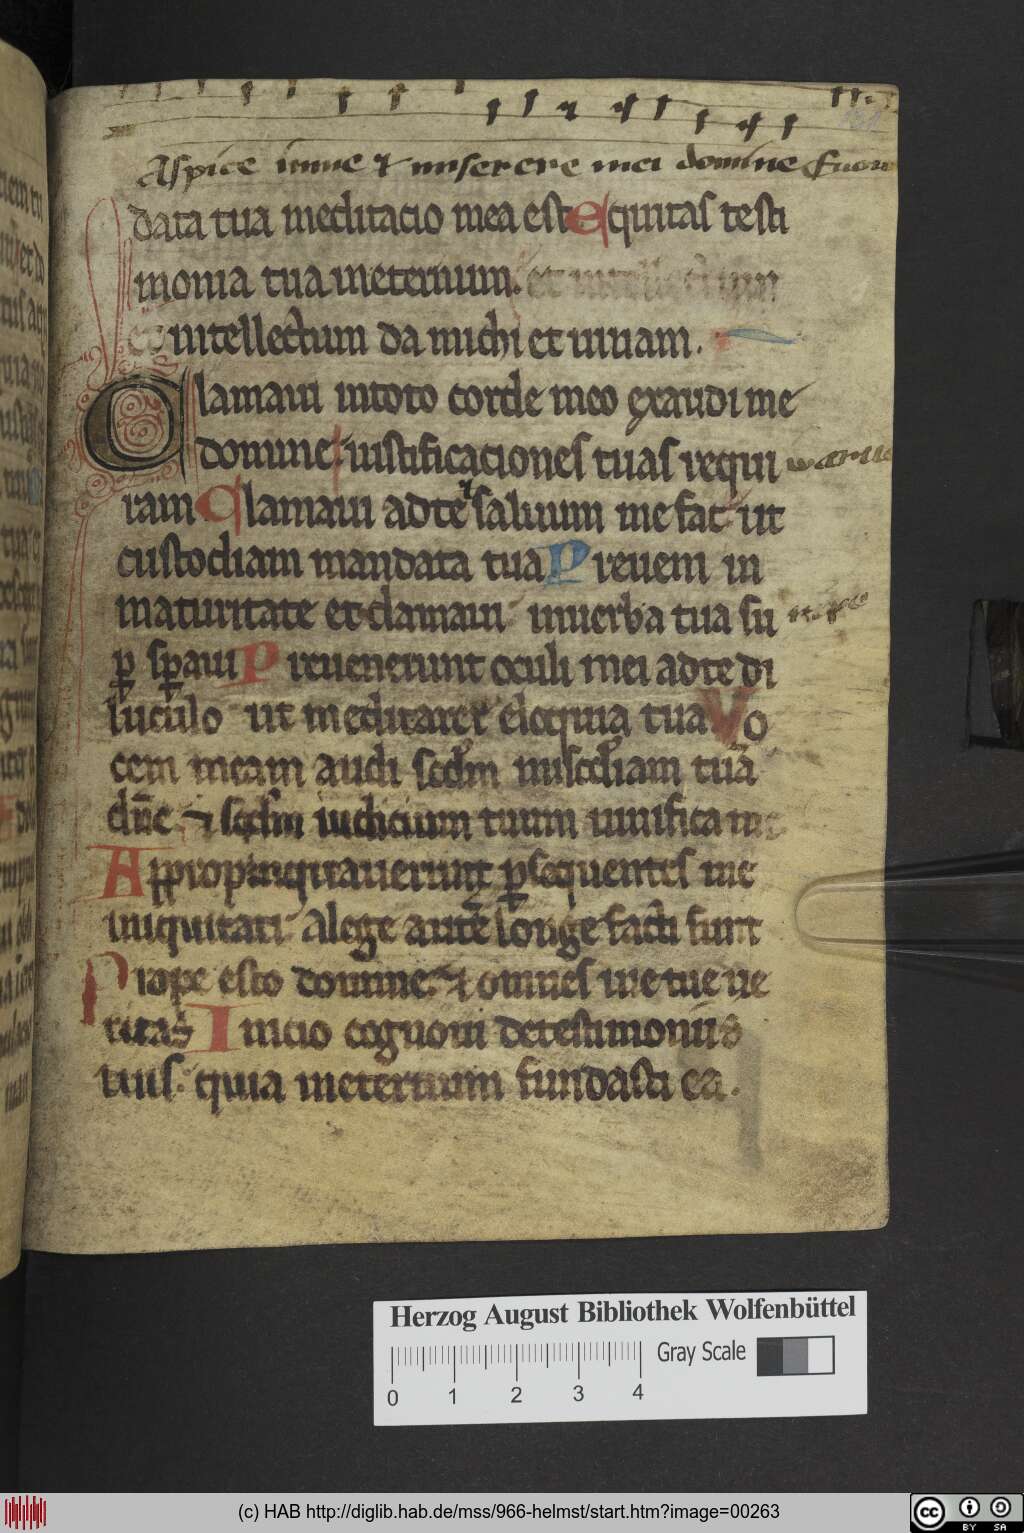 Aspice in me et miserere mei domine Euou
data tua meditacio mea est equitas testi
monia tua ineternum. et intellectum
et intellectum da michi et uiuam.
Clamaui intoto corde meo exaudi me
domine iustificaciones tuas requi
ram Clamaui adte saluum me fac ut
custodiam mandata tua Preueni in
maturitate et clamaui inuerba tua su
ꝑ sꝑaui Preuenerunt oculi mei adte di
luculo ut meditarer eloquia tua Vo
cem meam audi scdm miscdiam tuā
dn̄e ⁊ scdm iudicium tuum uiuifica me
Appropinquauerunt ꝑsequentes me
iniquitati Alege autē longe facti sunt
Prope esto domine ⁊ omnes uie tue ue
ritas Inicio cognoui detestimoniis
tuis. quia ineternum fundasti ea.
Herzog August Bibliothek Wolfenbüttel
Gray Scale
0 1 2 3 4
(c) HAB http://diglib.hab.de/mss/966-helmst/start.htm?image=00263
cc BY SA